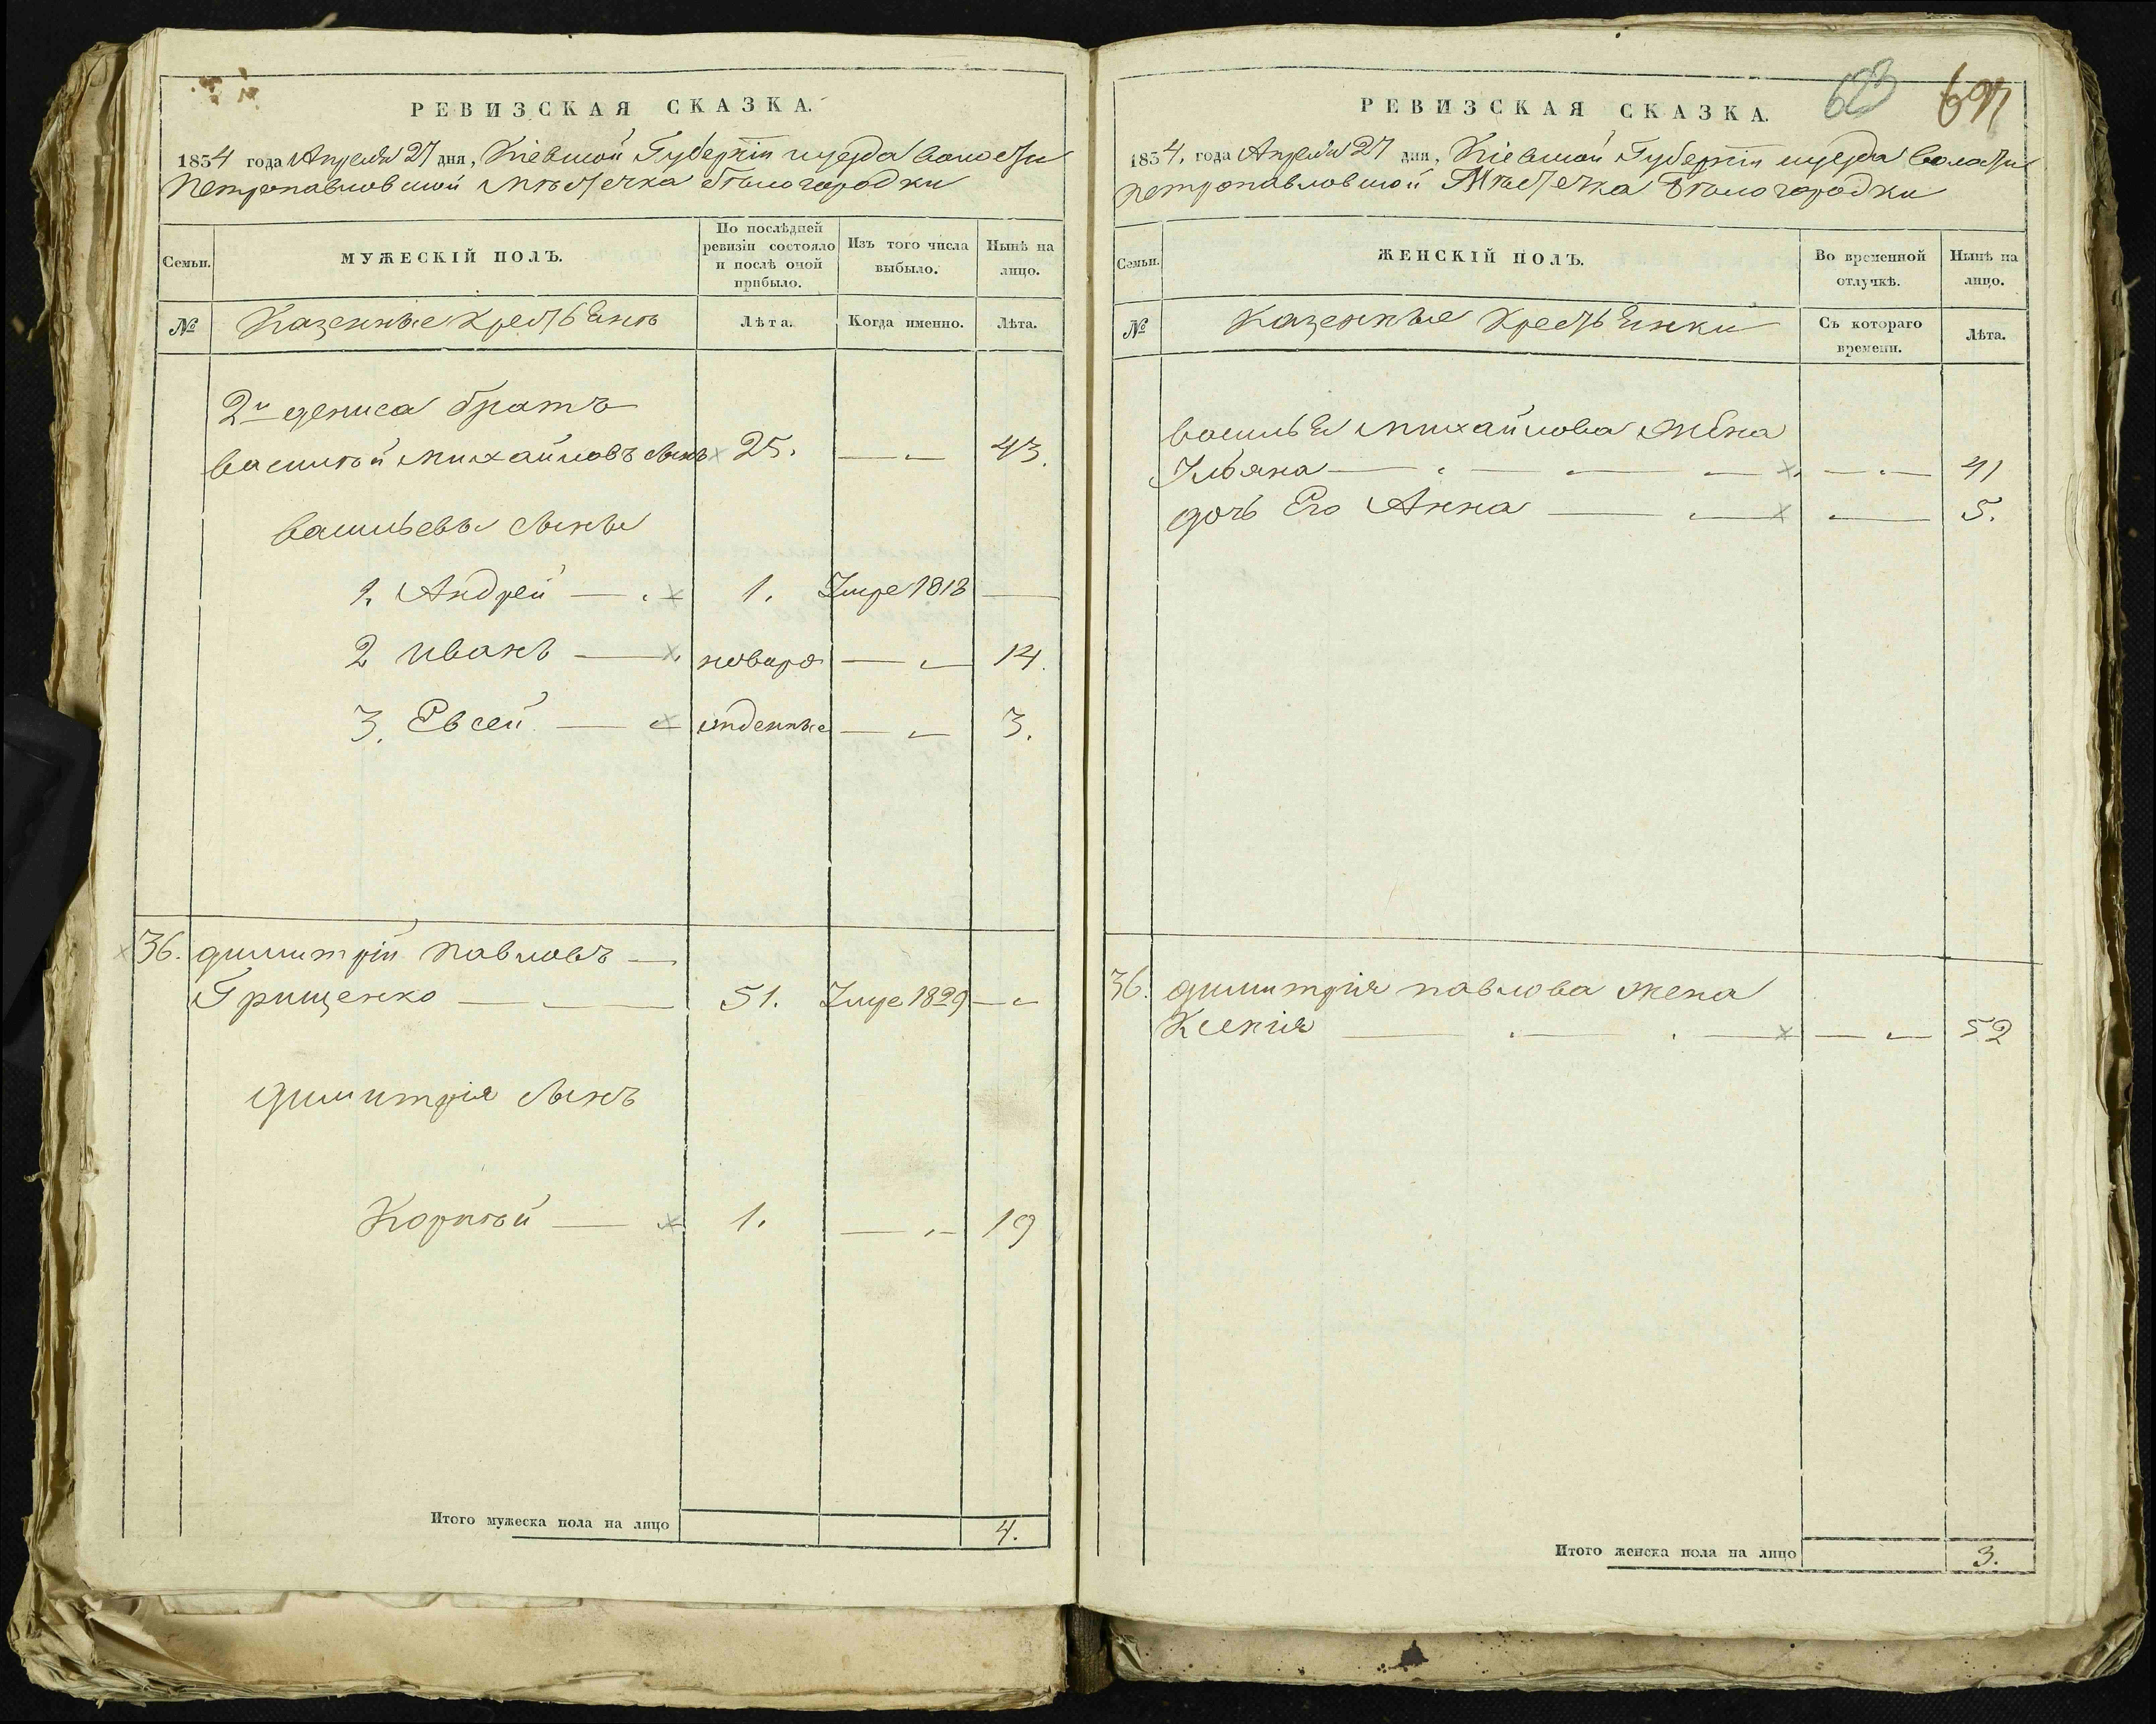 РЕВИЗСКАЯ СКАЗКА.
1834 года Апреля 27 дня, Кіевской Губерніи и уезда волости
Петропавловской мѣстечка бѣлогородки
Семьи.
МУЖЕСКІЙ ПОЛЪ.
По послѣдней ревизіи состояло и послѣ оной прибыло.
Изъ того числа выбыло.
Нынѣ на лицо.
№
Казенные крестьянѣ
Лѣта.
Когда именно.
Лѣта.
2й дениса братъ
василѣй михайловъ сынъ 25. 43.
васильевы сыны
1. Андрей 1. Умре 1818
2 иванъ новоро 14.
3. Евсей жденные 3.
36. димитрій павловъ
Грищенко 51. Умре 1829
димитрія сынъ
Корнѣй 1. 19
Итого мужеска пола на лицо 4.
623 697
РЕВИЗСКАЯ СКАЗКА.
1834. года Апреля 27 дня, Кіевской Губерніи и уезда воласти
петропавловской Мѣстечка Бѣлогородки
Семьи.
ЖЕНСКІЙ ПОЛЪ.
Во временной отлучкѣ.
Нынѣ на лицо.
№
Казенные Крестьянки
Съ котораго времени.
Лѣта.
василья михайлова жена
Ульяна 41
дочь Его Анна 5.
36. димитрия павлова жена
Ксения 52
Итого женска пола на лицо 3.